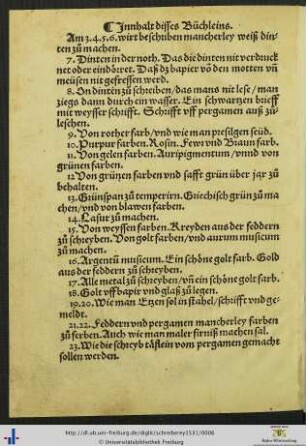 ¶ Innhalt disses Büchleins.
Am 3. 4. 5. 6. wirt beschriben mancherley weiß din-
ten zů machen.
7. Dinten in der noth. Das die dinten nit verduck
net oder eindörret. Daß dz bapir võ den motten vñ
meüsen nit gefressen werd.
8. On dinten zů schreiben/das mans nit lese/man
ziegs dann durch ein wasser. Ein schwartzen brieff
mit weysser schrifft. Schrifft vff pergamen auß zů-
leschen.
9. Von rother farb/vnd wie man presilgen seüd.
10. Purpur farben. Rosin. Fewr vnd Braun farb.
11. Von gelen farben. Auripigmentum/vnnd von
grünen farben.
12 Von grünen farben vnd safft grün über jar zů
behalten.
13. Grünspan zů temperirn. Griechisch grün zů ma
chen/vnd von blawen farben.
14. Lasur zů machen.
15. Von weyssen farben. Kreyden aus der feddern
zů schreyben. Von golt farben/vnd aurum musicum
zů machen.
16. Argentũ musicum. Ein schöne golt farb. Gold
aus der feddern zů schreyben.
17. Alle metal zů schreyben/vñ ein schöne golt farb.
18. Golt vff bapir vnd glaß zů legen.
19. 20. Wie man Etzen sol in stahel/schrifft vnd ge-
meldt.
21. 22. Feddern vnd pergamen mancherley farben
zů ferben. Auch wie man maler firniß machen sal.
23. Wie die schreyb täflein vom pergamen gemacht
sollen werden.
http://dl.ub.uni-freiburg.de/diglit/schreiberey1531/0006
© Universitätsbibliothek Freiburg
Baden-Württemberg